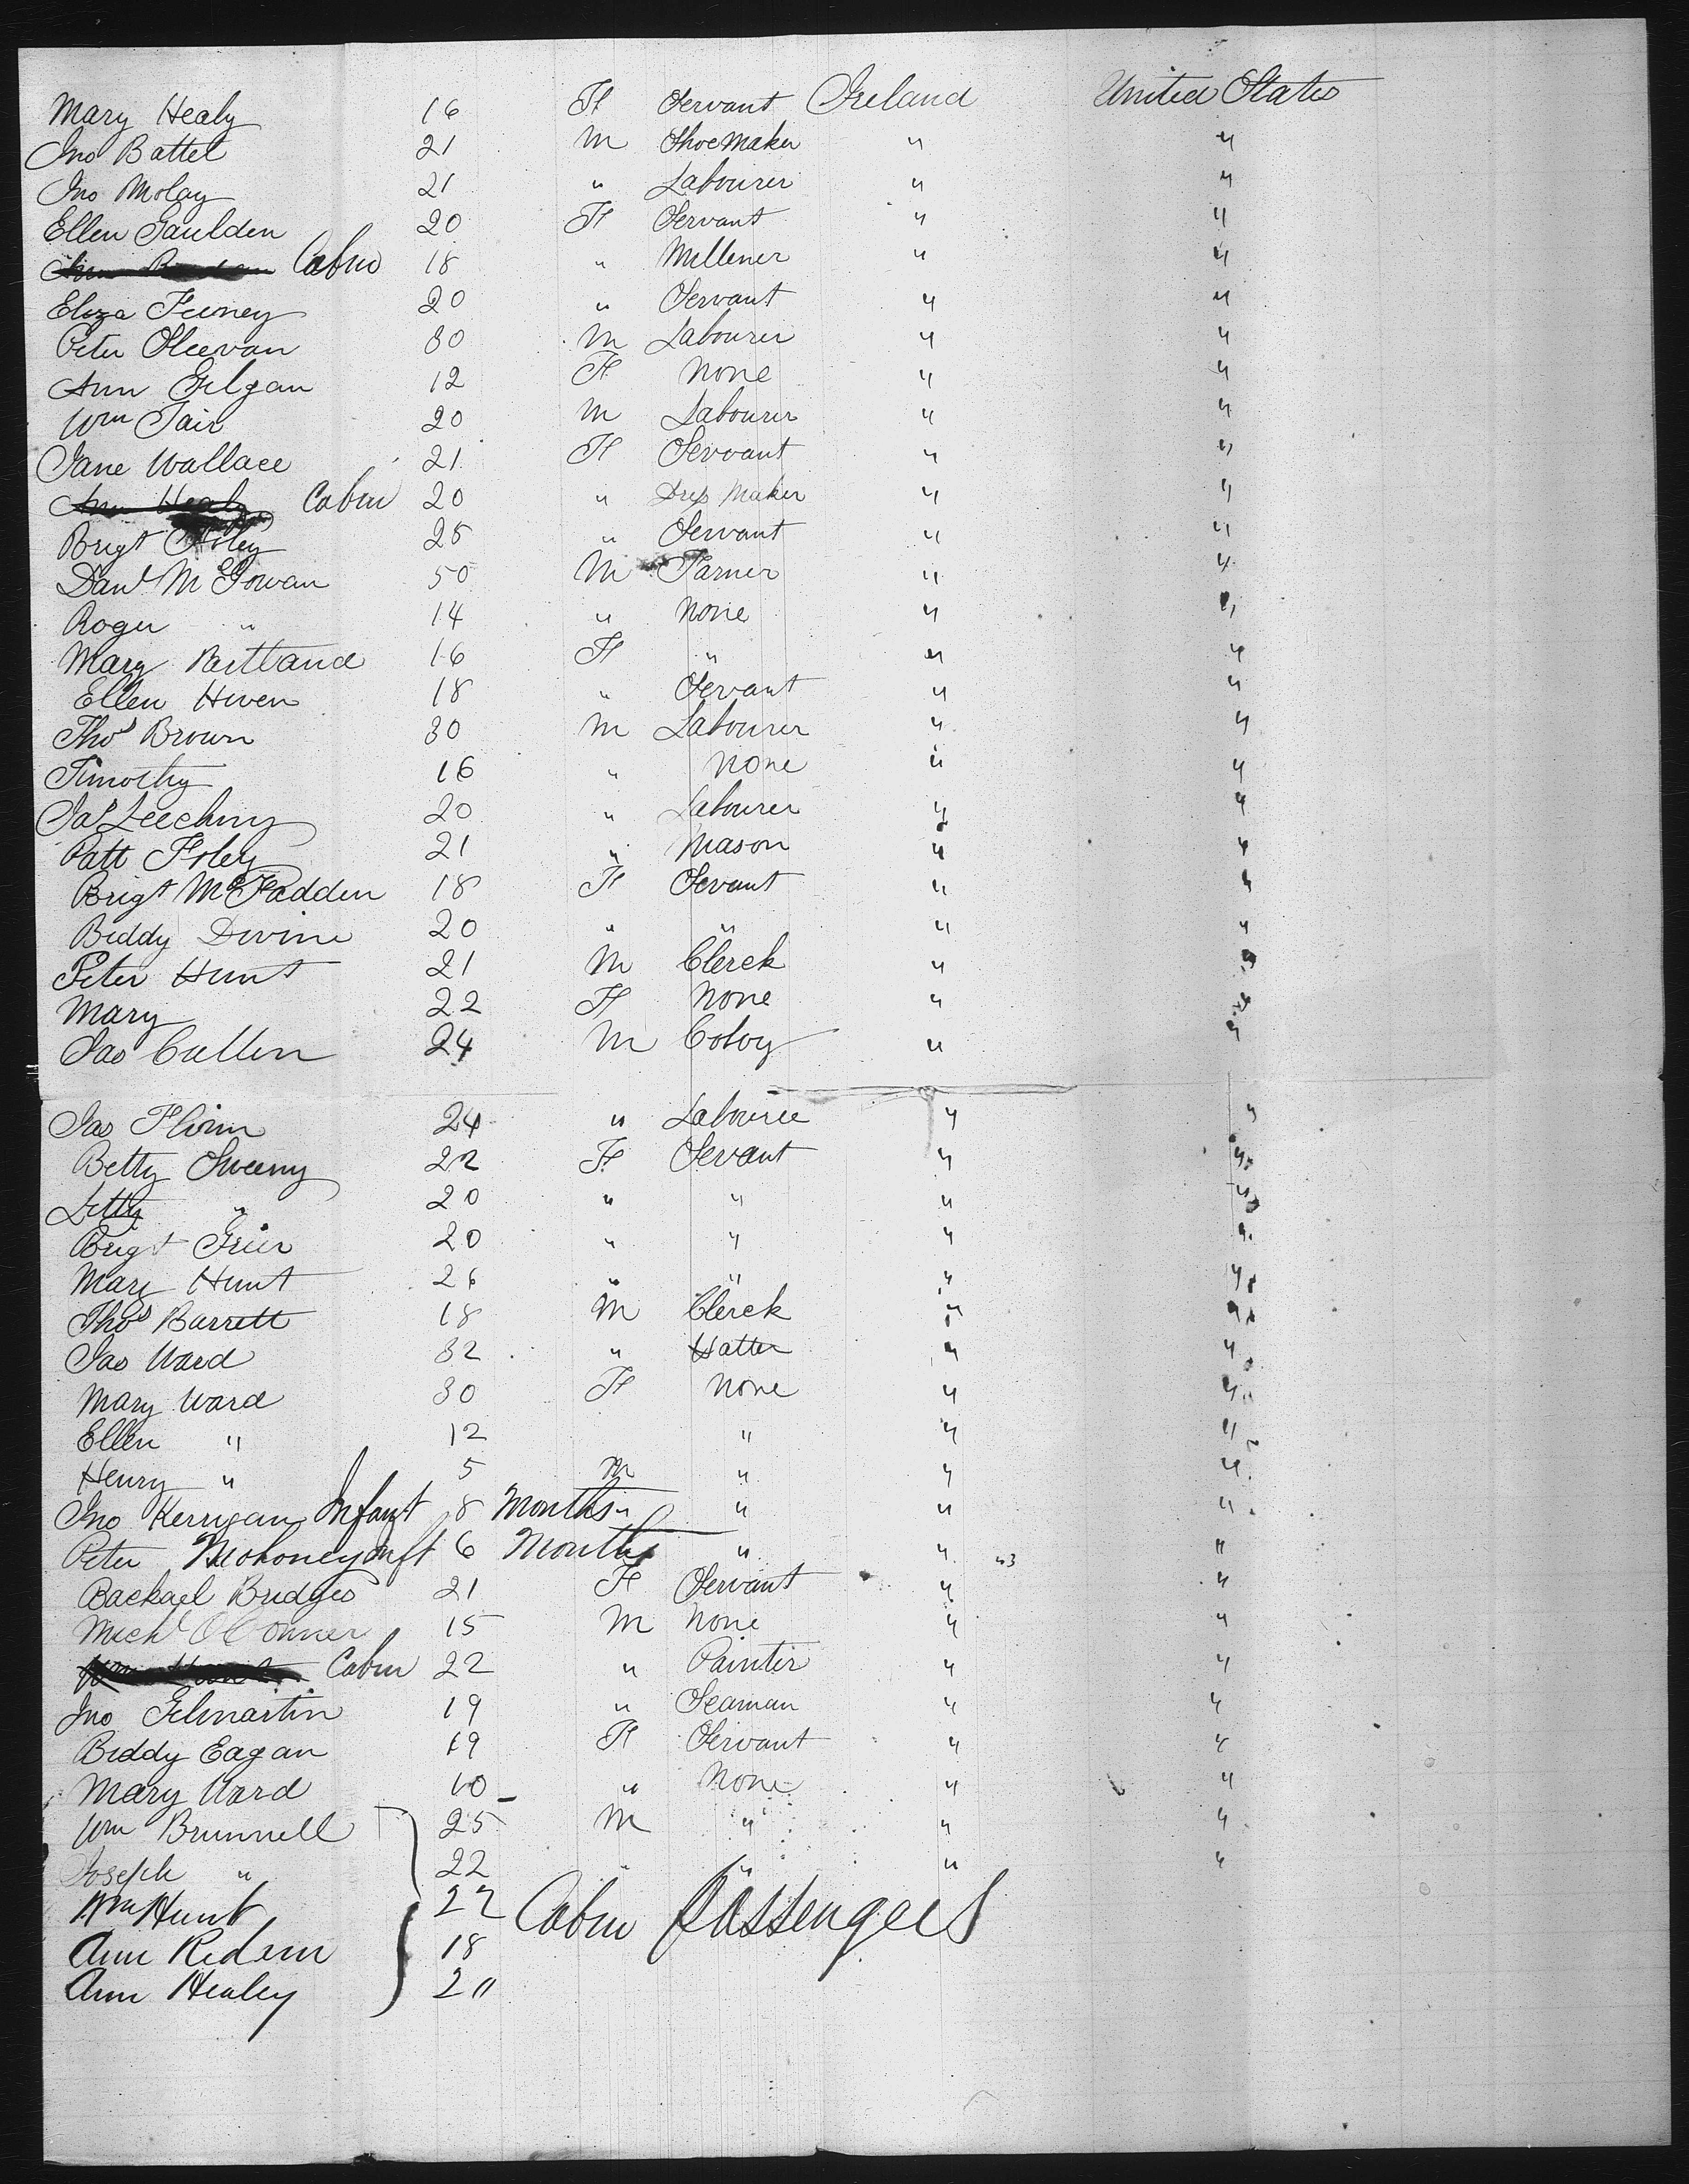 Mary Healy 16 F Servant Ireland United States
Jno Battel 21 M Shoe Maker " "
Jno Molay 21 " Labourer " "
Ellen Gaulden 20 F Servant " "
Ann Cabin 18 " Millener " "
Eliza Feeney 20 " Servant " "
Peter Sleevan 30 M Labourer " "
Ann Gilgan 12 F None " "
Wm Tair 20 M Labourer " "
Jane Wallace 21 F Servant " "
Ann Healy Cabin 20 " Dress Maker " "
Brigt Foley 25 " Servant " "
Danl McGowan 50 M Farmer " "
Roger " 14 " None " "
Mary Partland 16 F " " "
Ellen Hiven 18 " Servant " "
Thos Brown 30 M Labourer " "
Timothy 16 " None " "
Jas Leechny 20 " Labourer " "
Patt Foley 21 " Mason " "
Brigt McFadden 18 F Servant " "
Biddy Divine 20 " " " "
Peter Hunt 21 M Clerck " "
Mary 22 F None " "
Jas Cullen 24 M " "
Jas Flinn 24 " Labourer " "
Betty Sweeny 22 F Servant " "
Letty " 20 " " " "
Brigt Grier 20 " " " "
Mary Hunt 26 " " " "
Thos Barrett 18 M Clerck " "
Jas Ward 32 " Hatter " "
Mary Ward 30 F None " "
Ellen " 12 " " "
Henry " 5 M " " "
Jno Kerrigan Infant 8 Months " " " "
Peter Mohoney Inft 6 Months " " "
Rachael Bridges 21 F Servant " "
Michl OConner 15 M None " "
Wm Hunt Cabin 22 " Painter " "
Jno Gilmartin 19 " Seaman " "
Biddy Eagan 19 F Servant " "
Mary Ward 10 " None " "
Wm Brunnell 25 M " " "
Joseph " 22 " " " "
Wm Hunt 22 Cabin Passengers
Ann Redem 18
Ann Healey 20